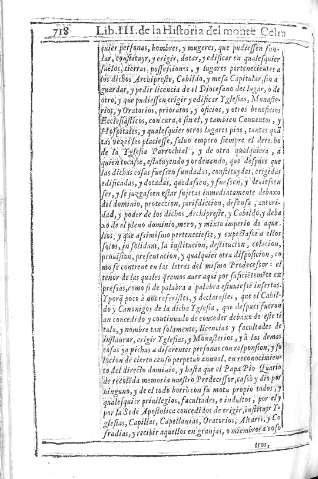 718 Lib. III. de la Historia del monte Celia
quier personas, hombres, y mugeres, que pudiessen fun-
dar, constituyr, y erigir, dotar, y edificar en qualesquier
suelos, tierras, possessiones, y lugares pertenecientes a
los dichos Archipreste, Cabildo, y mesa Capitular, sin a
guardar, y pedir licencia de el Diocesano del lugar, o de
otro; y que pudiessen erigir y edificar Yglesias, Monaste-
rios, y Oratorios, prioratos, y oficios, y otros beneficios
Ecclesiasticos, con cura, o sin el, y tambien Conuentos, y
Hospitales, y qualesquier otros lugares pios, tantos quã
tas vezes les pluciesse, saluo empero siempre el derecho
de la Yglesia Parrochial, y de otra qualquiera, a
quien tocasse, estatuyendo y ordenando, que despues que
las dichas cosas fuessen fundadas, constituydas, erigidas
edificadas, y dotadas, quedassen, y fuessen, y deuiessen
ser, y se juzgassen estar sujetas inmediatamente debaxo
del dominio, proteccion, jurisdicion, defensa, autori-
dad, y poder de los dichos Archipreste, y Cabildo, y deba
xo de el pleno dominio, mero, y mixto imperio de aque-
llos, y que assimismo perteneciesse, y expectasse a ellos
solos, in solidum, la institucion, destitucion, colacion,
prouision, presentacion, y qualquier otra disposicion, co
mo se contiene en las letras del mismo Predecessor: el
tenor de las quales queremos auer aqui por suficientemẽte ex
pressas, como si de palabra a palabra estuuiesse insertas.
Y por q̃ poco à nos referistes, y declarastes, que el Cabil-
do y Canonigos de la dicha Yglesia, que despues fueron
an concedido y continuado de conceder debaxo de este ti
tulo, y nombre tan solamente, licencias y facultades de
instaurar, erigir Yglesias, y Monasterios, y à las demas
cosas ya dichas à diferentes personas con responsion, y so
lucion de cierto censo perpetuo annual, en reconocimien-
to del directo dominio, y hasta que el Papa Pio Quarto
de recolida memoria nuestro Predecessor, casò y diò por
ninguno, y de el todo borrò en su motu proprio todos, y
qualesquier priuilegios, facultades, e indultos, por el y
por la Sede Apostolica concedidos de erigir, instituyr Y-
glesias, Capillas, Capellanias, Oratorios, Altares, y Co
fradias, y recibir aquellos en granjas, o miembros a vuso
tros,